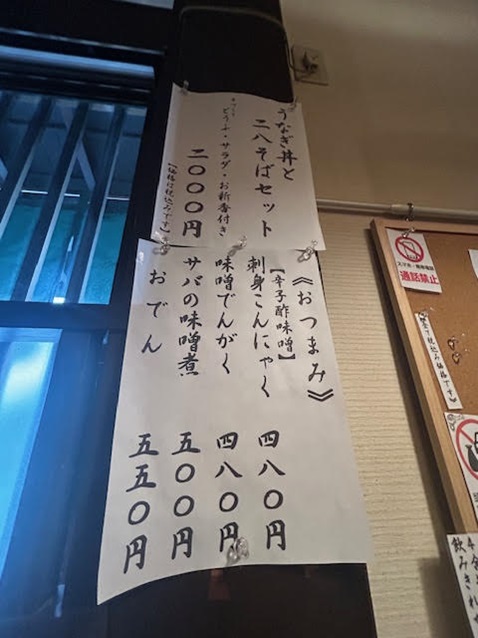 うなぎ丼と
二八そばセット
どうふ・サラダ・お新香付き
二〇〇〇円
【価格は税込みです】
《おつまみ》
【辛子酢味噌】
刺身こんにゃく 四八〇円
味噌でんがく 四八〇円
サバの味噌煮 五〇〇円
おでん 五五〇円
通話禁止
【全て税込み価格です】